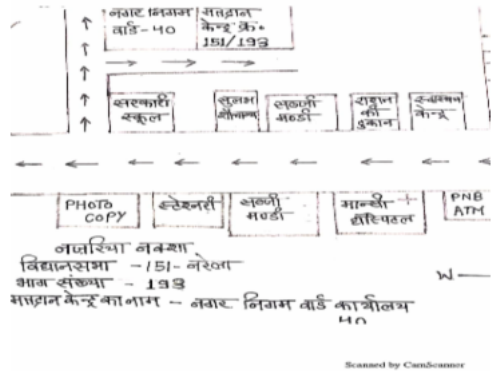 नगर निगम
वार्ड-40
मतदान
केन्द्र क्र.
151/193
सरकारी
स्कूल
सुलभ
शौचालय
सब्जी
मण्डी
राशन
की
दुकान
स्वास्थ्य
केन्द्र
PHOTO
COPY
स्टेशनरी
सब्जी
मण्डी
मान्सी
हॉस्पिटल
PNB
ATM
नजरिया नक्शा
विधानसभा -151- नरेला
भाग संख्या - 193
मतदान केन्द्र का नाम - नगर निगम वार्ड कार्यालय
40
W
Scanned by CamScanner